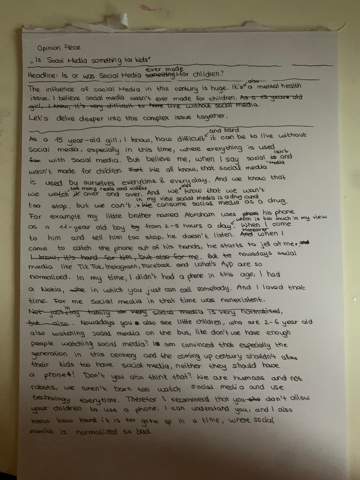 Opinion Piece
"Is Social Media something for kids"
Headline: Is or was Social Media something ever made for children?
The influence of social media in this century is huge. It's also a mental health
issue. I believe social media wasn't ever made for children. As a 15 years old
girl, I know, it's very difficult to live without social media.
Let's delve deeper into this complex issue together.
As a 15 year-old girl, I know, how difficult and hard it can be to live without
social media, especially in this time, where everything is used
with social media. But believe me, when I say social media isn't and
wasn't made for children. We all know, that social media
is used by ourselves everytime & everyday. And we know that
we watch too many reels and videos over and over. And we also know that we want
too stop, but we can't. In my view social media is a drug. We consume social media as a drug.
For example my little brother named Abraham uses his phone
as a 11-year old boy 5 hours a day, which is too much in my view. When I come
to him and tell him too stop, he doesn't listen. Moreover when I
came to catch the phone out of his hands, he starts to yell at me.
I know, it's hard for him, but also for me. But nowadays social
media like Tik Tok, Instagram, Facebook and What's App are so
normalized. In my time, I didn't had a phone in this age. I had
a Nokia, in which you just can call somebody. And I loved that
time. For me social media in that time was nonexistent.
Not just for today social media is very normalized,
but also. Nowadays you also see little children, who are 2-6 year old
also watching social media on the bus, like don't we have enough
people watching social media? I am convinced that especially the
generation in this century and the coming up century shouldn't allow
their kids too have social media, neither they should have
a phone! Don't you also think that? We are humans and not
robots, we aren't born too watch social media and use
technology everytime. Therefor I recommend that you don't allow
your children to use a phone. I can understand you, and I also
know how hard it is too give up in a time, where social
media is normalized so bad.